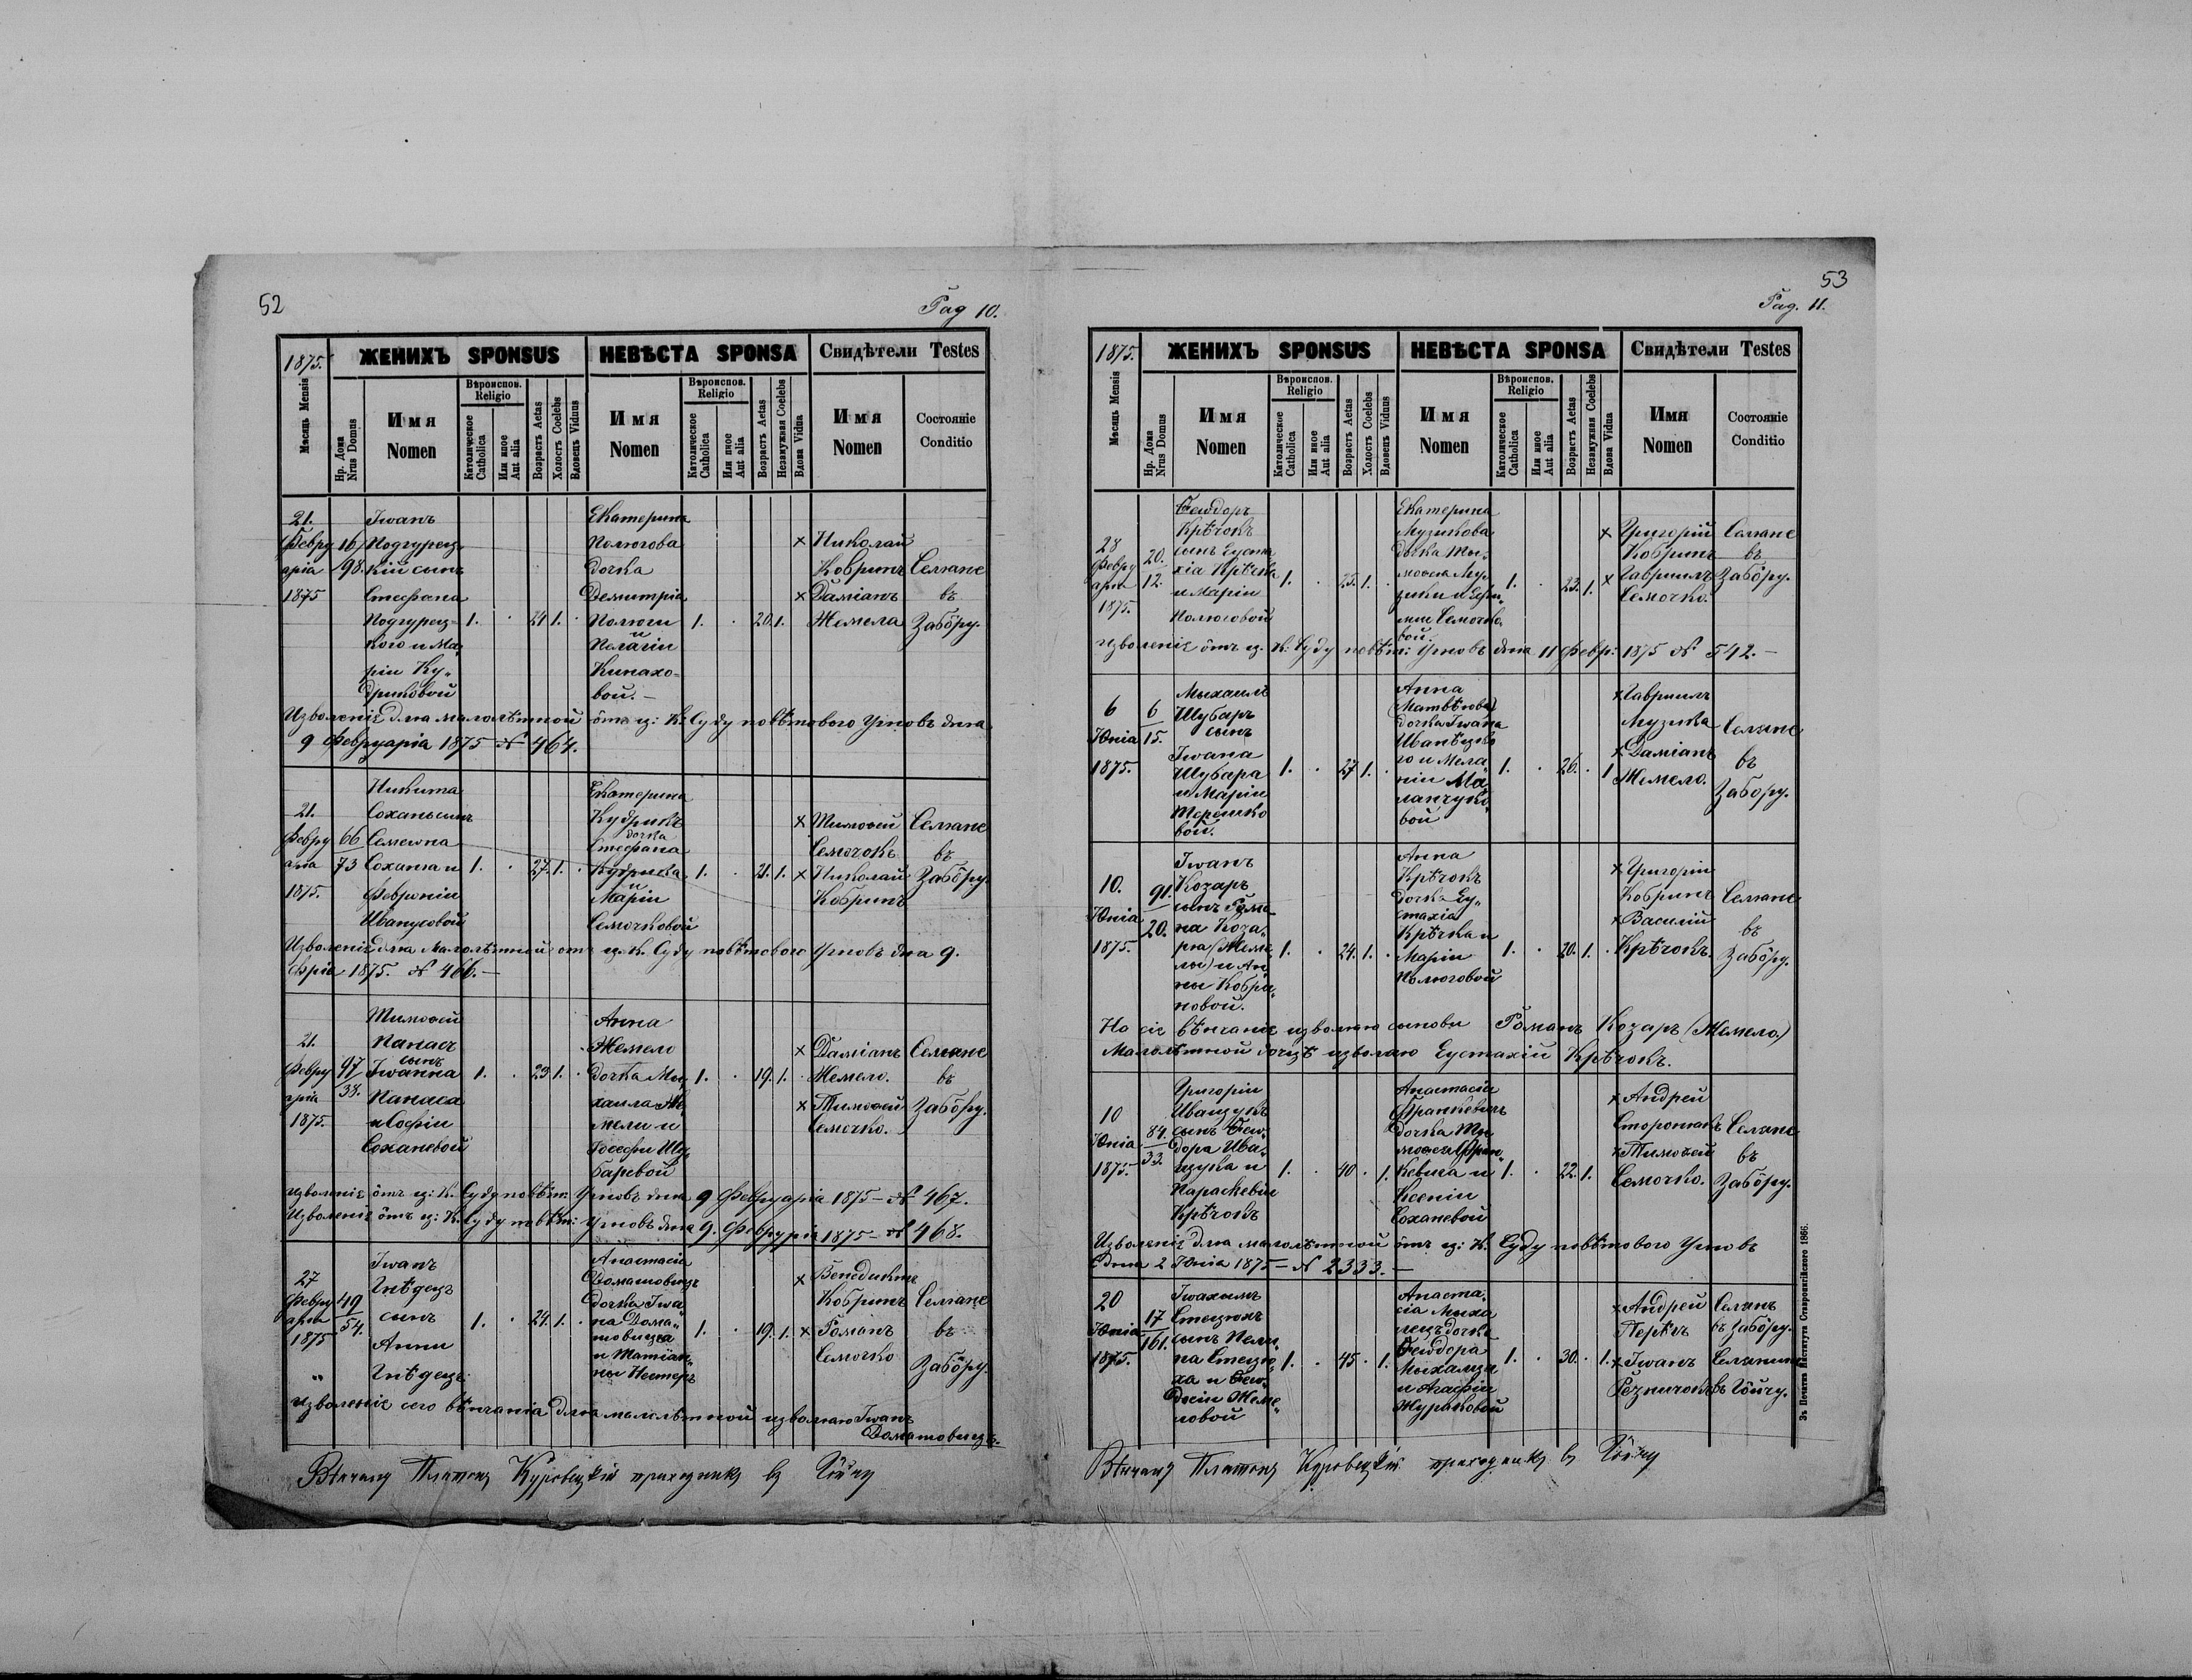 52
Pag 10.
1875.
ЖЕНИХЪ SPONSUS
НЕВѢСТА SPONSA
Свидѣтели Testes
Мѣсяцъ Mensis
Нр. Дома
Nrus Domus
Имя
Nomen
Вѣроиспов.
Religio
Католическое
Catholica
Или иное
Aut alia
Возрастъ Aetas
Холостъ Coelebs
Вдовецъ Viduus
Имя
Nomen
Вѣроиспов.
Religio
Католическое
Catholica
Или иное
Aut alia
Возрастъ Aetas
Незамужная Coelebs
Вдова Vidua
Имя
Nomen
Состояніе
Conditio
21.
Февру
арія
1875
16/
98.
Iwанъ
Подгурец
кій сынъ
Стефана
Подгурец=
кого и Ма„
ріи Ку„
дриковой
1. . 24 1. .
Екатерина
Полюгова
дочка
Демитріа
Полюги
и
Пелагіи
Кинахо=
вой.—
1. . 20. 1.
× Николай
Кобринъ
× Даміанъ
Жемела
Селяне
въ
Забôру.
Изволеніе для малолѣтной ôтъ ц: К: Суду повѣтового Угновъ дня
9 Февруаріа 1875 № 464.
21.
Февру
арія
1875.
66
73
Никита
Соханъ сынъ
Семеона
Сохана и
Февроніи
Иванусовой
1. . 27. 1. .
Екатерина
Кудрикъ
дочка
Стефана
Кудрика
и
Маріи
Семочковой
1. . 21. 1.
× Тимоѳей
Семочокъ
× Николай
Кобринъ
Селяне
въ
Забôру.
Изволеніе для малолѣтной от ц. К. Суду повѣтового Угновъ дня 9.
1875. № 466.—
21.
Февру
арія
1875.
97/
38.
Тимоѳей
Панасъ
сынъ
Iwанна
Панаса
и Софіи
Соханевой
1. . 23 1. .
Анна
Жемело
дочка Ми„
хаила Же
мели и
Іосефы Шу„
баревой
1. . 19. 1. .
× Даміанъ
Жемело.
× Тимоѳей
Семочко.
Селяне
въ
Забôру.
изволеніе ôтъ ц: К. Суду повѣт: Угновъ дня 9 Февруаріа 1875 – № 467.
Изволеніе ôтъ ц: К. Суду повѣт: Угновъ дня 9. Февруріа 1875 – № 468.
27
Февру
арія
1875
„
49
54.
Iwанъ
Гнѣдецъ
сынъ
Анны
Гнѣдецъ
1. . 24. 1. .
Анастасіа
Доматовицъ
дочка Iwа„
на Дома„
товица
и Матіан„
ны Нестеръ
1. . 19. 1.
× Венедиктъ
Кобринъ
× Романъ
Семочко
Селяне
въ
Забôру.
Изволеніе сего вѣнчанія для малолѣтной изволяю Iwанъ
Доматовицъ.
Вѣнчалъ Платонъ Куровецкій приходникъ въ Гôйчу
53
Pag. 11.
1875.
ЖЕНИХЪ SPONSUS
НЕВѢСТА SPONSA
Свидѣтели Testes
Мѣсяцъ Mensis
Нр. Дома
Nrus Domus
Имя
Nomen
Вѣроиспов.
Religio
Католическое
Catholica
Или иное
Aut alia
Возрастъ Aetas
Холостъ Coelebs
Вдовецъ Viduus
Имя
Nomen
Вѣроиспов.
Religio
Католическое
Catholica
Или иное
Aut alia
Возрастъ Aetas
Незамужная Coelebs
Вдова Vidua
Имя
Nomen
Состояніе
Conditio
28
Февру
арія
1875.
20.
12.
Ѳеодоръ
Крѣчокъ
сынъ Еуста
хіа Крѣчка
и Маріи
Полюговой
1. . 25. 1. .
Екатерина
Музикова
дочка Ти„
моѳея Му„
зики и
Семочко
вой
1. . 23. 1.
× Григорій
Кобринъ
× Гавриилъ
Семочко.
Селяне
въ
Забôру.
изволеніе ôтъ ц. К: Суду повѣт: Угновъ дня 11 Февр: 1875 № 542.—
6
Юніа
1875.
6
15.
Михаилъ
Шубаръ
сынъ
Iwана
Шубара
и Маріи
Терешко
вой.
1. . 27 1. .
Анна
(Матвѣева)
дочка Iwана
Иванѣцко
го и Мела„
ніи Ма„
ланчуко„
вой
1. . 26. . 1
× Гавриилъ
Музика
× Даміанъ
Жемело.
Селяне
въ
Забору.
10.
Юніа
1875.
91.
20.
Iwанъ
Козаръ
сынъ Рома
на Коза„
ра (Жеме
лы) и Ан„
ны Кобри„
новой.
1. . 24. 1. .
Анна
Крѣчокъ
дочка Еу„
стахіа
Крѣчка и
Маріи
Полюговой
1. . 20. 1. .
× Григорій
Кобринъ
× Василій
Крѣчокъ.
Селяне
въ
Забôру.
На сіе вѣнчаніе изволяю сынови Романъ Козаръ (Жемело)
Малолѣтной дочцѣ изволяю Еустахій Крѣчокъ.
10
Юніа
1875.
84.
33.
Григорій
Иващукъ
сынъ Ѳео„
дора Ива„
щука и
Параскевіи
Крѣчокъ
1. . 40 . 1.
Анастасіа
Франкевичъ
дочка Ти
моѳея Фран„
кевича и
Ксеніи
Соханевой
1. . 22. 1.
× Андрей
Сторончакъ
× Тимоѳей
Семочко.
Селяне
въ
Забôру.
Изволеніе для малолѣтной ôтъ ц: К. Суду повѣтового Угновъ
дня 2 Юніа 1875 – № 2333.—
20
Юніа
1875.
17
161.
Iwахимъ
Стецюхъ
сынъ
на Стецю„
ха и Ѳео„
досіи Жеме„
ловой
1. . 45 . 1.
Анаста„
сіа Миха
лецъ дочка
Ѳеодора
Михалця
и Агафіи
Жураковой
1. . 30. . 1.
× Андрей
Перѣгъ
× Iwанъ
Резничокъ
Селянъ
въ Забôру.
Селянинъ
въ Гôйчу.
Зъ Печатнѣ Института Ставропигійского 1866.
Вѣнчалъ Платонъ Куровецкій приходникъ въ Гôйчу